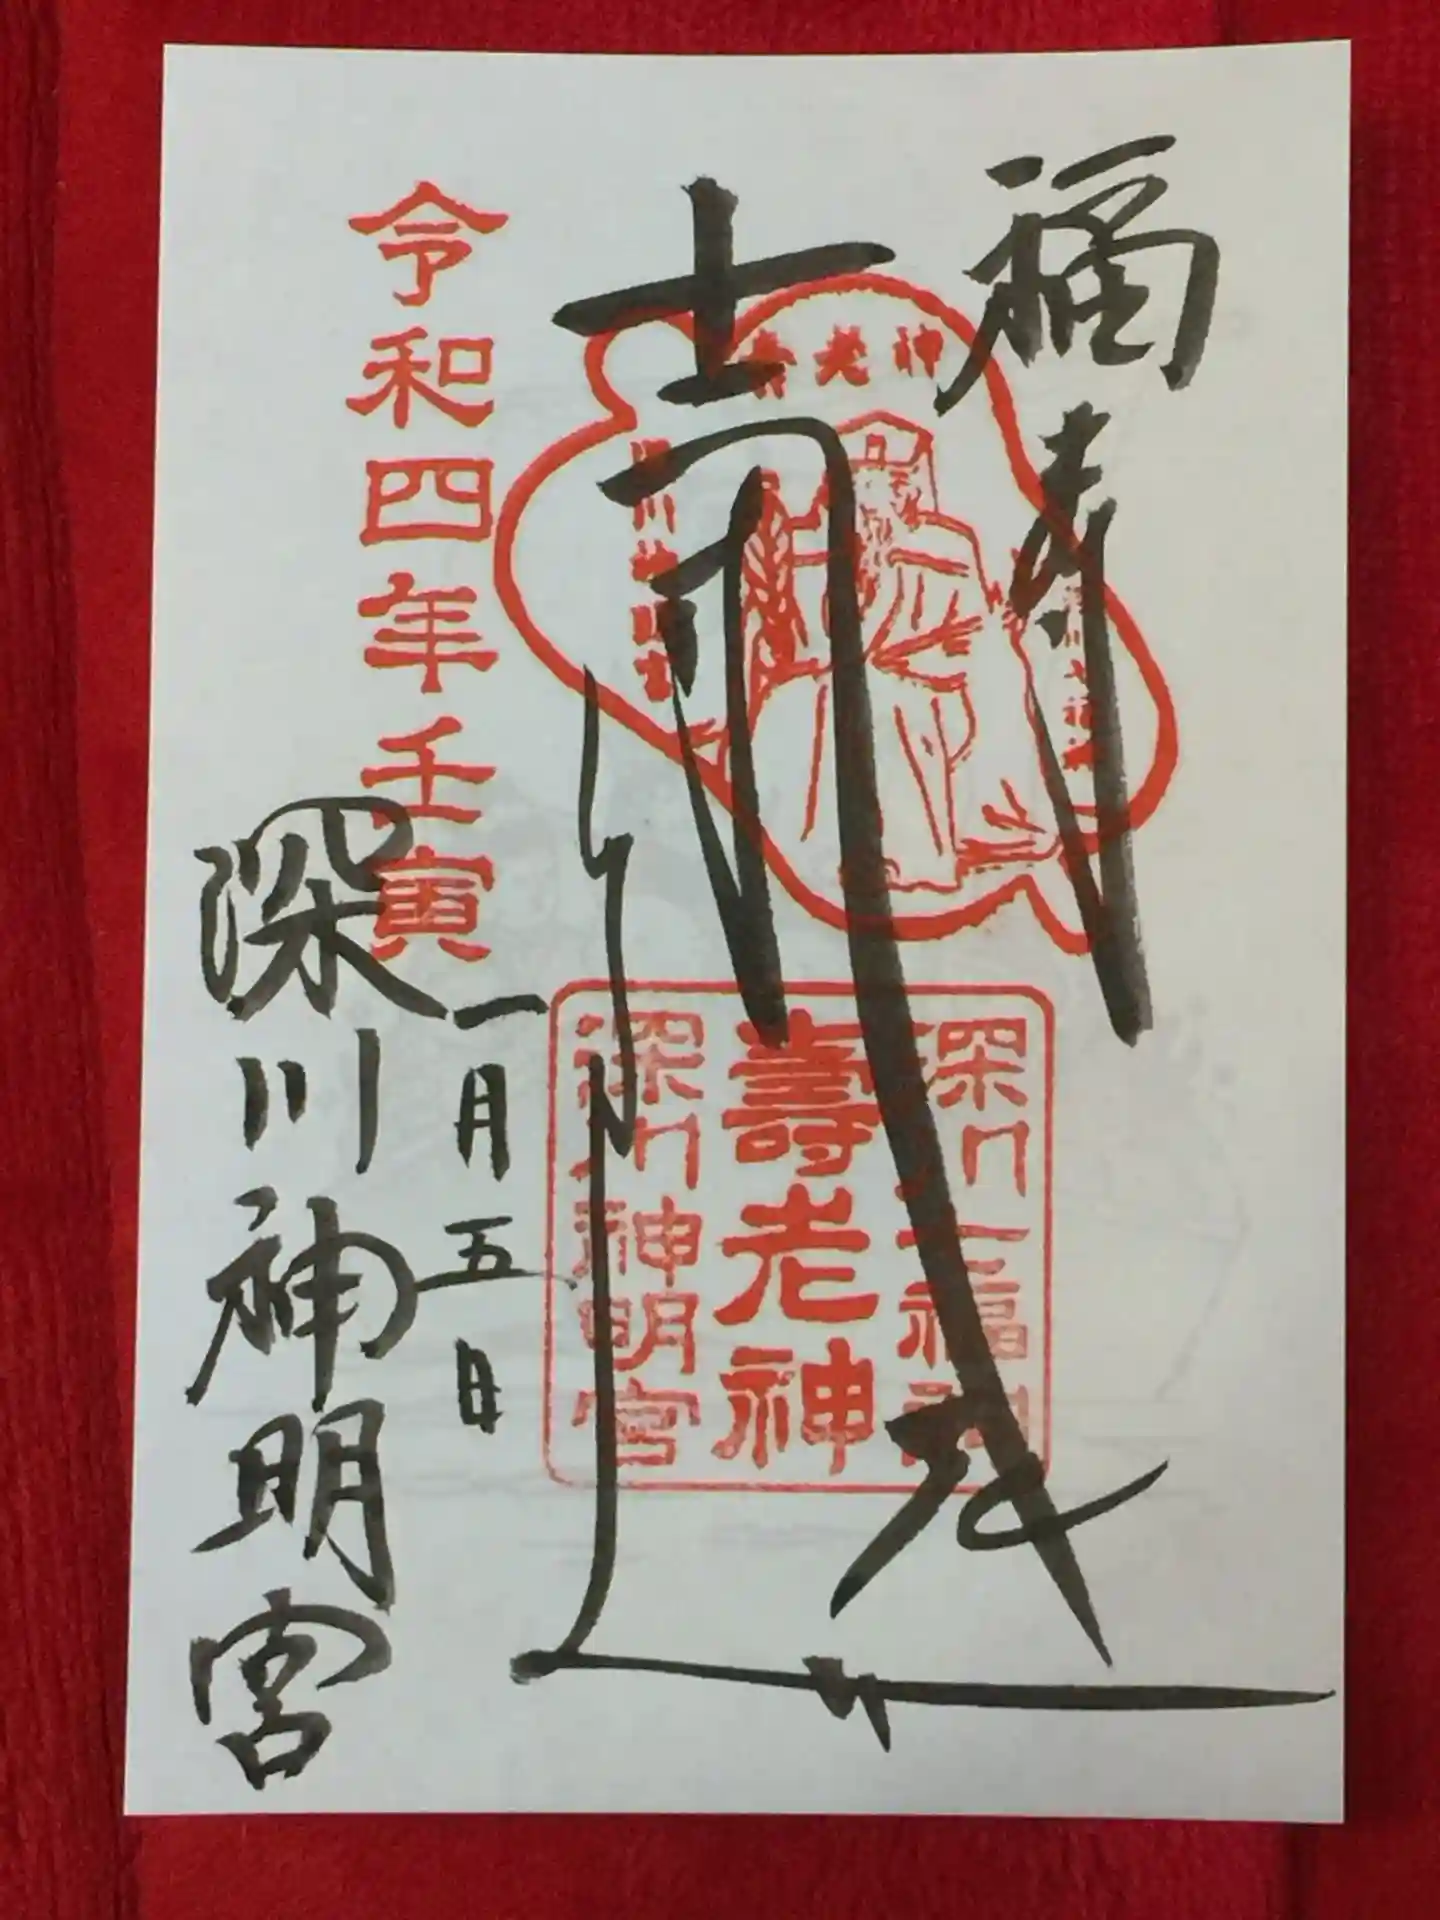 福寿
開運
深川七福神
壽老神
深川神明宮
寿老神
深川神明宮
令和四年壬寅
一月五日
深川神明宮